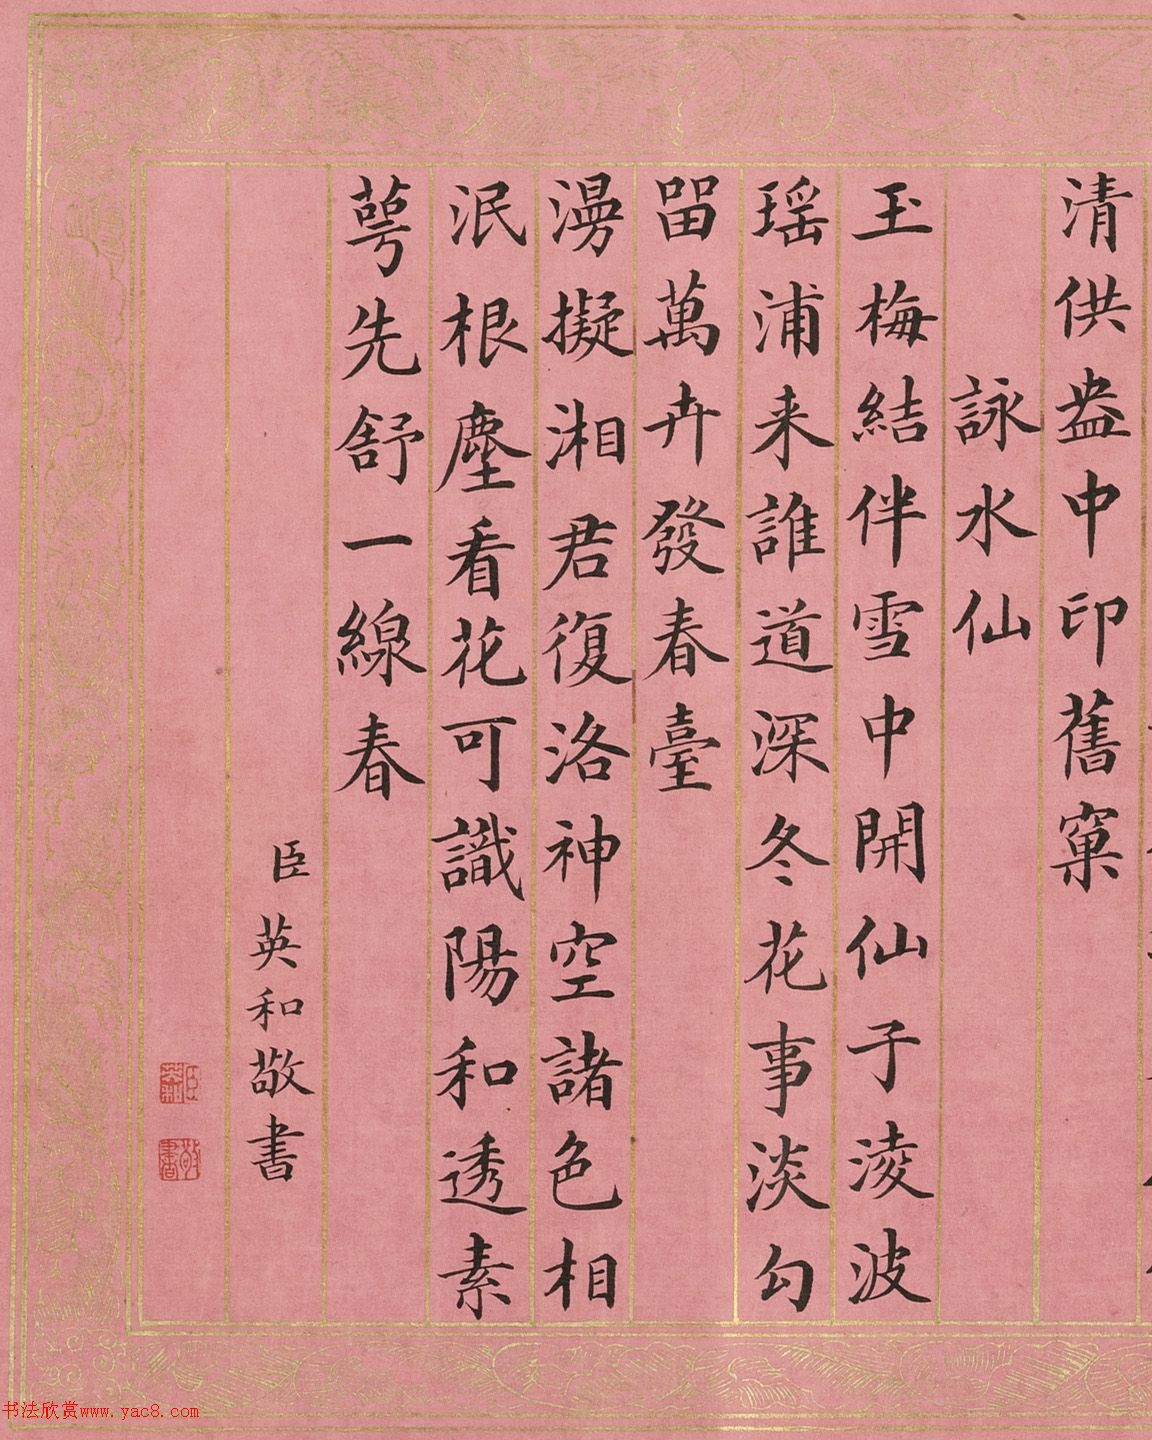 清供盎中印舊窠
詠水仙
玉梅結伴雪中開仙子淩波
瑶浦来誰道深冬花事淡勾
留萬卉發春臺
漫擬湘君復洛神空諸色相
泯根塵看花可識陽和透素
萼先舒一線春
臣英和敬書
臣英
敬書
书法欣赏www.yac8.com